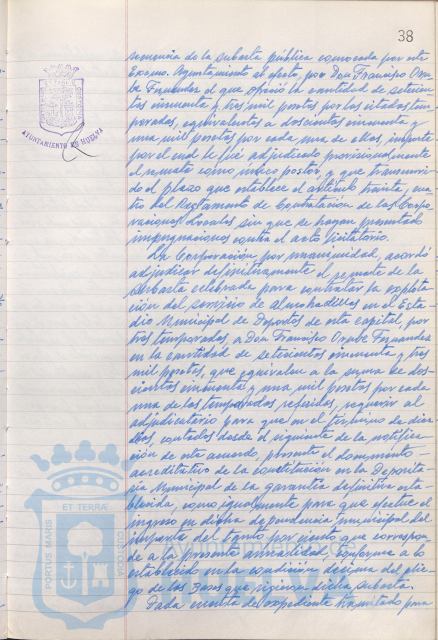 38
romería de la subasta pública convocada por este
Excmo. Ayuntamiento al efecto, por Don Francisco Orube
Fernandez el que ofreció la cantidad de setecien-
tas cincuenta y tres mil pesetas por las citadas tem-
poradas, equivalentes a doscientas cincuenta y
una mil pesetas por cada una de ellas, importe
por el cual le fué adjudicado provisionalmente
el remate como único postor, y que transcurri-
do el plazo que establece el artículo treinta, cua-
tro del Reglamento de Contratación de las Corpo-
raciones Locales sin que se hayan presentado
impugnaciones contra el acto licitatorio.
La Corporación por unanimidad, acordó
adjudicar definitivamente el remate de la
subasta celebrada para contratar la explota-
ción del servicio de almohadillas en el Esta-
dio Municipal de Deportes de esta capital, por
tres temporadas, a Don Francisco Orube Fernandez
en la cantidad de setecientas cincuenta y tres
mil pesetas, que equivalen a la suma de dos-
cientas cincuenta y una mil pesetas por cada
una de las temporadas referidas, requerir al
adjudicatario para que en el término de diez
días, contados desde el siguiente de la notifica-
ción de este acuerdo, presente el documento
acreditativo de la constitución en la Deposita-
ría Municipal de la garantía definitiva esta-
blecida, como igualmente para que efectue el
ingreso en dicha dependencia municipal del
importe del tanto por ciento que correspon-
de a la presente anualidad conforme a lo
establecido en la condición décima del plie-
go de las Bases que rigieron dicha subasta.
Dada cuenta de expediente tramitado para
AYUNTAMIENTO DE HUELVA
ET TERRAE
PORTUS MARIS
CUSTODIA
HUELVA